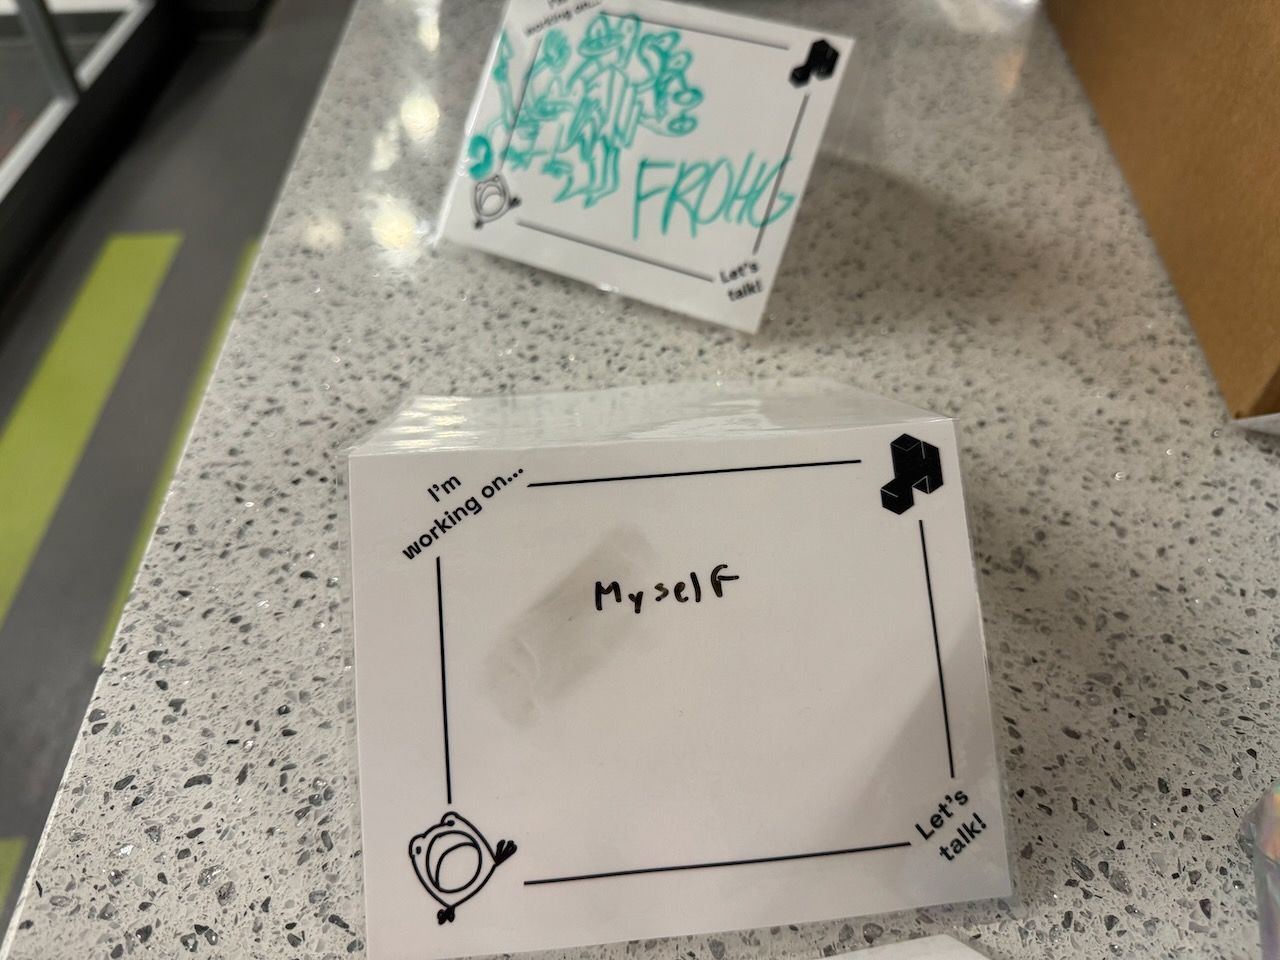 I'm
working on...
FROHG
Let's
talk!
I'm
working on...
Myself
Let's
talk!